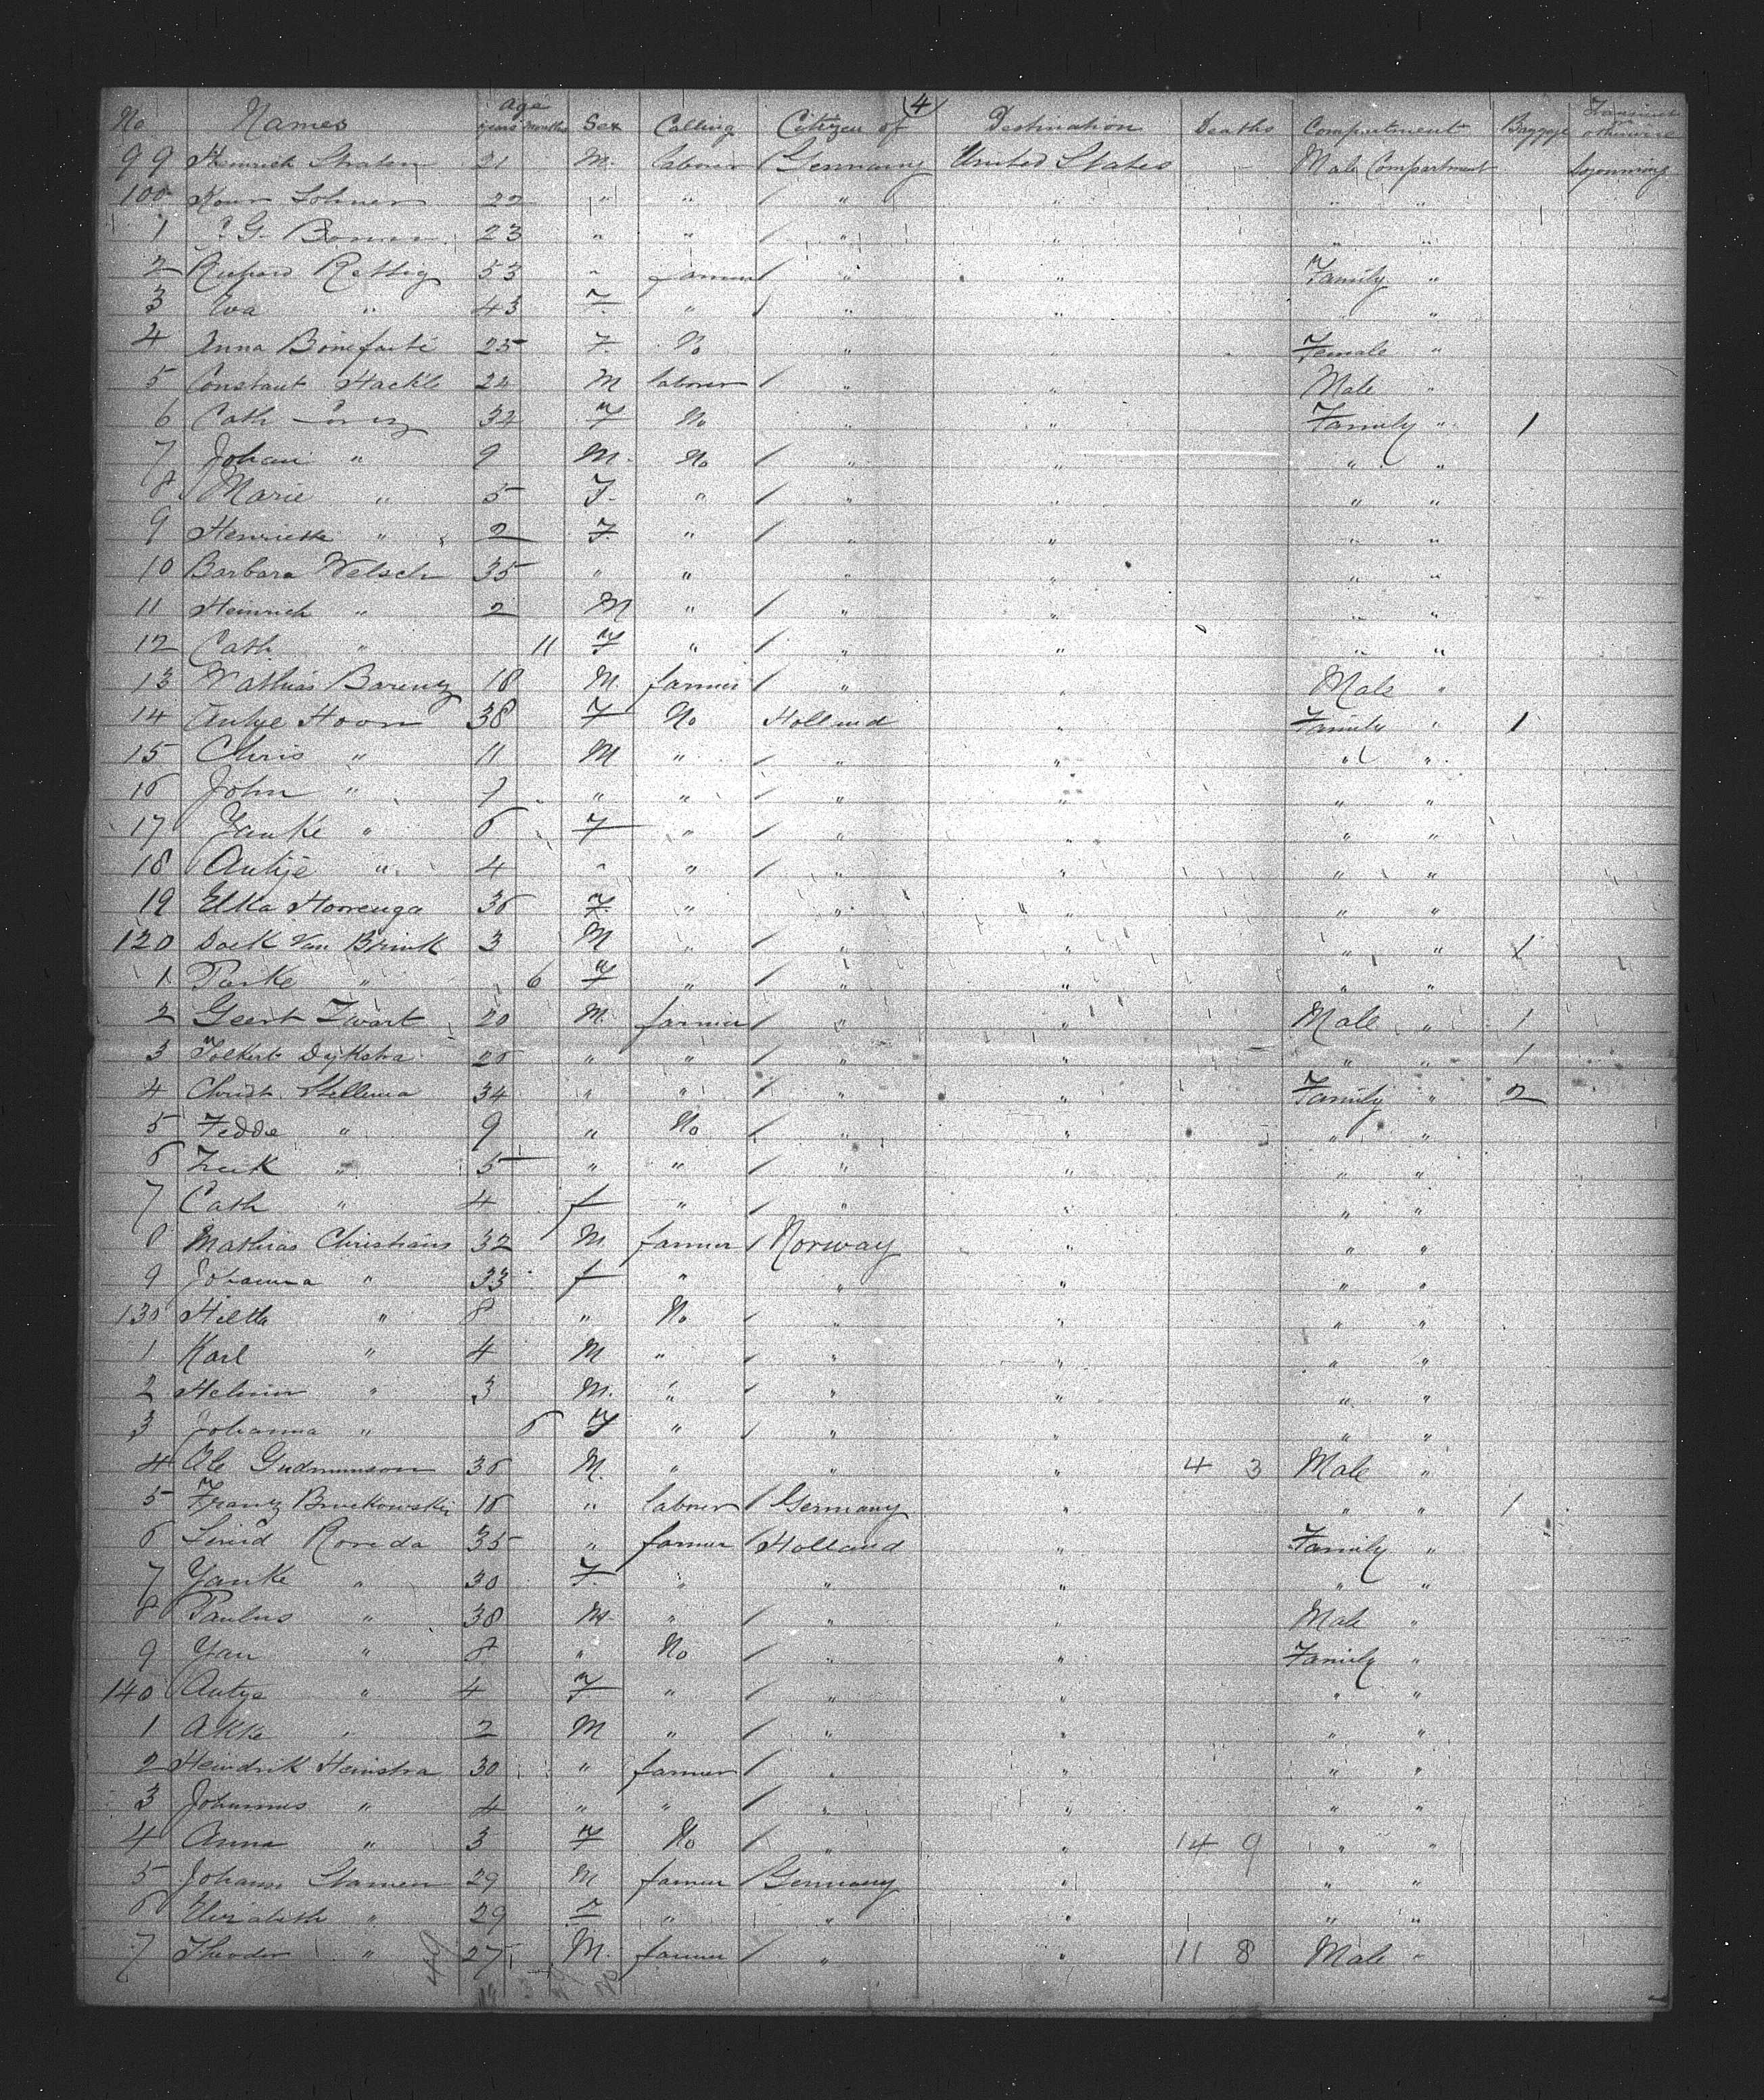 (4)
No Names age years months Sex Calling Citizen of Destination Deaths Compartment Baggage
99 Heinrich Straten 21 M. laborer / Germany United States Male Compartment Sojourning
100 Lohner 22 " " / " " " "
1 G. 23 " " / " " " "
2 Richard Rettig 53 " farmer / " " Family "
3 Eva " 43 F. " / " " " "
4 Anna Bonefacti 25 F. No " " Female "
5 Constant Hackle 22 M laborer / " " Male "
6 Cath 32 F No " " Family " 1
7 Johan " 9 M. No / " " " "
8 Marie " 5 F. " / " " " "
9 Henriette " 2 F. " / " " " "
10 Barbara Welsch 35 " " " " " "
11 Heinrich " 2 M " / " " " "
12 Cath " 11 F " / " " " "
13 Mathias Barentz 18 M. farmer / " " Male "
14 Antje Hoorn 38 F No Holland " Family " 1
15 Chris " 11 M " / " " " "
16 John " 7 " " / " " " "
17 Yanke " 6 F " / " " " "
18 Antje " 4 " " / " " " "
19 Elka Hoorenga 36 F. " " " " "
120 Doek Van Brink 3 M " / " " " " 1
1 Parke " 6 F " / " " " "
2 Geert Zwart 20 M. farmer / " " Male " 1
3 Folkert Dijkstra 26 " " / " " " " 1
4 Christ. Skellema 34 " " / " " Family " 2
5 Fedde " 9 " No / " " " "
6 " 5 " " / " " " "
7 Cath " 4 f " / " " " "
8 Mathias Christians 32 M. farmer / Norway " " "
9 Johanna " 33 f " " " " "
130 " 8 " No / " " " "
1 Karl " 4 M " / " " " "
2 " 3 M. " / " " " "
3 Johanna " 6 F " / " " " "
4 Ole Gudmunson 36 M. " " " 4 3 Male "
5 Frantz Bruckowski 16 " laborer / Germany " " " 1
6 Roorda 35 " farmer / Holland " Family "
7 Yanke " 30 F. " " " " "
8 Paulus " 38 M. " / " " Male "
9 Yan " 8 " No / " " Family "
140 Antje " 4 F. " / " " " "
1 Akke " 2 M " / " " " "
2 Hendrik Heinstra 30 " farmer / " " " "
3 Johannes " 4 " " / " " " "
4 Anna " 3 F No / " " 14 9 " "
5 Johann Stamen 29 M farmer / Germany " " "
6 Elisabeth " 29 F " " " " "
7 Theodor " 27 M. farmer / " " 11 8 Male "